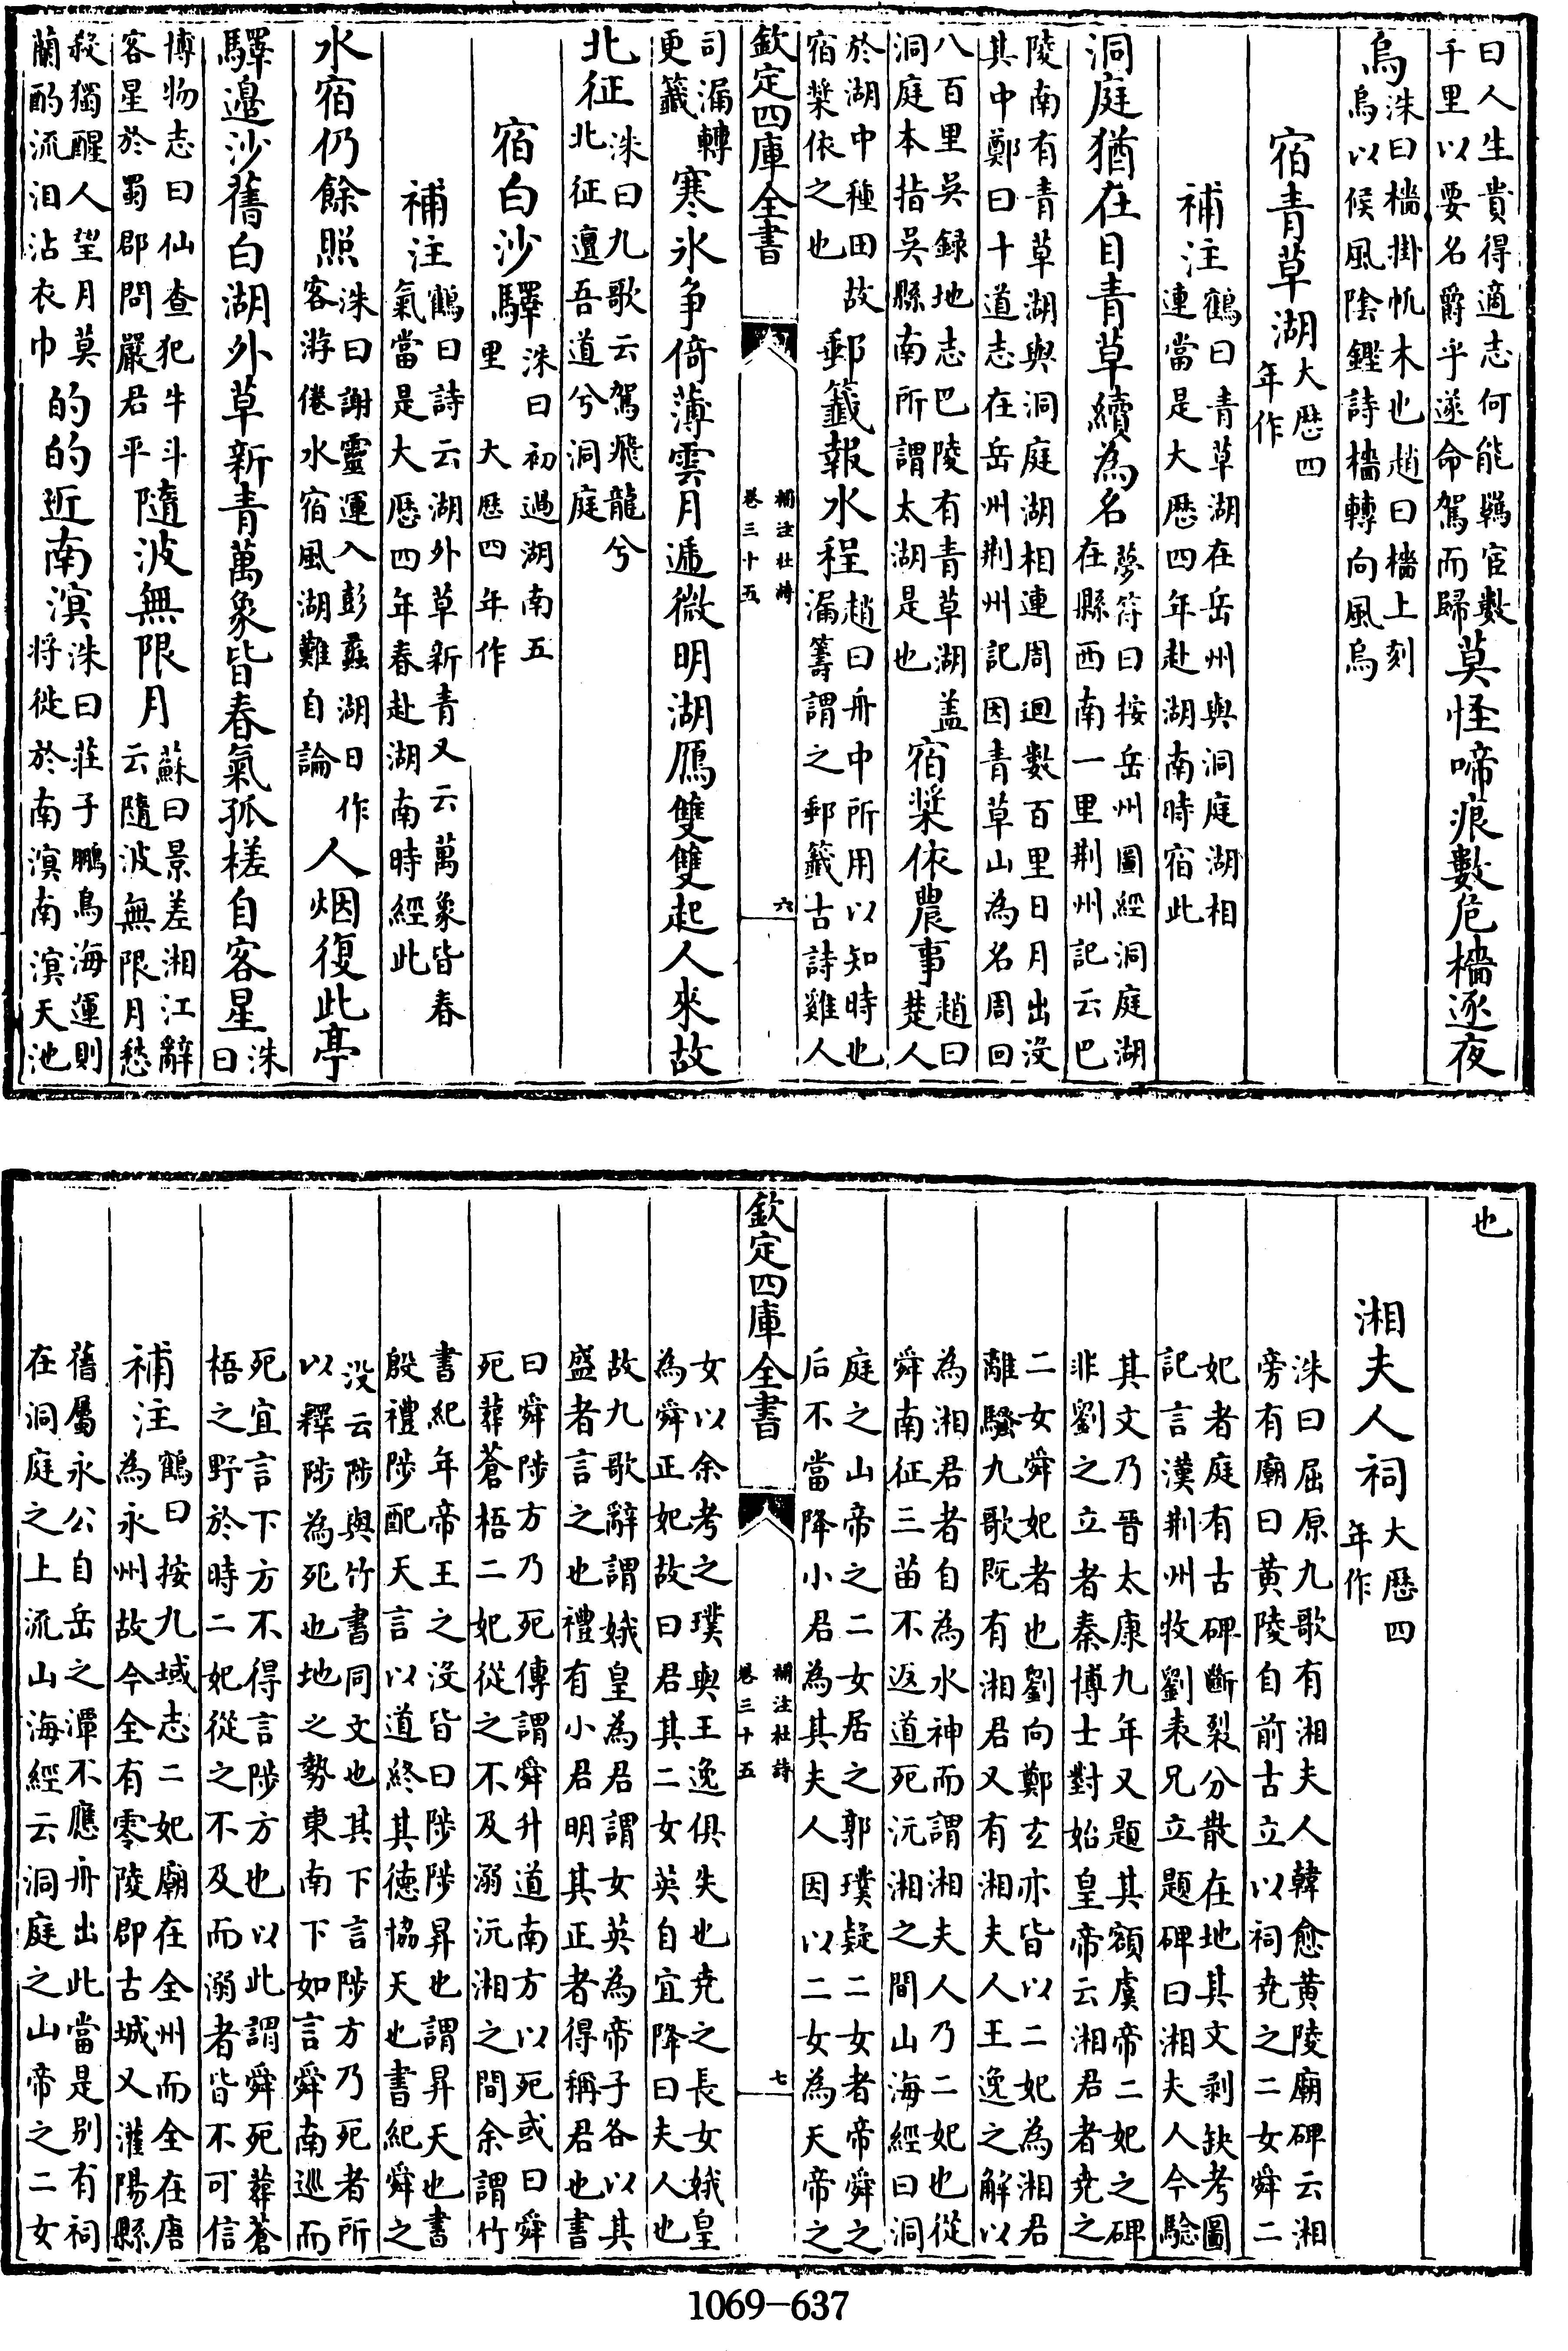 曰人生貴得適志何能羈宦數
千里以要名爵乎遂命駕而歸莫怪啼痕數危檣逐夜
烏洙曰檣掛帆木也趙曰檣上刻
烏以候風陰鏗詩檣轉向風烏
宿青草湖大歷四年作
補注鶴曰青草湖在岳州與洞庭湖相
連當是大歷四年赴湖南時宿此
洞庭猶在目青草續為名夢符曰按岳州圖經洞庭湖
在縣西南一里荆州記云巴
陵南有青草湖與洞庭湖相連周迴數百里日月出没
其中鄭曰十道志在岳州荆州記因青草山為名周回
八百里吳録地志巴陵有青草湖盖
洞庭本指吳縣南所謂太湖是也宿槳依農事趙曰
楚人
於湖中種田故
宿槳依之也郵籤報水程趙曰舟中所用以知時也
漏籌謂之郵籤古詩雞人
欽定四庫全書
補注杜詩
卷三十五
六
司漏轉
更籤寒氷爭倚薄雲月遞微明湖鴈雙雙起人來故
北征洙曰九歌云駕飛龍兮
北征邅吾道兮洞庭
宿白沙驛洙曰初過湖南五
里大歷四年作
補注鶴曰詩云湖外草新青又云萬象皆春
氣當是大歷四年春赴湖南時經此
水宿仍餘照洙曰謝靈運入彭蠡湖日作
客游倦水宿風湖難自論人烟復此亭
驛邊沙舊白湖外草新青萬象皆春氣孤槎自客星洙
曰
博物志曰仙查犯牛斗
客星於蜀郡問嚴君平隨波無限月蘇曰景差湘江辭
云隨波無限月愁
殺獨醒人望月莫
蘭酌流泪沾衣巾的的近南溟洙曰莊子鵬鳥海運則
將徙於南溟南溟天池
也
湘夫人祠大歷四年作
洙曰屈原九歌有湘夫人韓愈黄陵廟碑云湘
旁有廟曰黄陵自前古立以祠堯之二女舜二
妃者庭有古碑斷裂分散在地其文剥缺考圖
記言漢荆州牧劉表兄立題碑曰湘夫人今驗
其文乃晉太康九年又題其額虞帝二妃之碑
非劉之立者秦博士對始皇帝云湘君者堯之
二女舜妃者也劉向鄭玄亦皆以二妃為湘君
離騷九歌既有湘君又有湘夫人王逸之解以
為湘君者自為水神而謂湘夫人乃二妃也從
舜南征三苗不返道死沅湘之間山海經曰洞
庭之山帝之二女居之郭璞疑二女者帝舜之
后不當降小君為其夫人因以二女為天帝之
欽定四庫全書
補注杜詩
卷三十五
七
女以余考之璞與王逸俱失也堯之長女娥皇
為舜正妃故曰君其二女女英自宜降曰夫人也
故九歌辭謂娥皇為君謂女英為帝子各以其
盛者言之也禮有小君明其正者得稱君也書
曰舜陟方乃死傳謂舜升道南方以死或曰舜
死葬蒼梧二妃從之不及溺沅湘之間余謂竹
書紀年帝王之沒皆曰陟陟昇也謂昇天也書
殷禮陟配天言以道終其徳協天也書紀舜之
没云陟與竹書同文也其下言陟方乃死者所
以釋陟為死也地之勢東南下如言舜南巡而
死宜言下方不得言陟方也以此謂舜死葬蒼
梧之野於時二妃從之不及而溺者皆不可信
補注鶴曰按九域志二妃廟在全州而全在唐
為永州故今全有零陵郡古城又灌陽縣
舊屬永公自岳之潭不應舟出此當是别有祠
在洞庭之上流山海經云洞庭之山帝之二女
1069-637